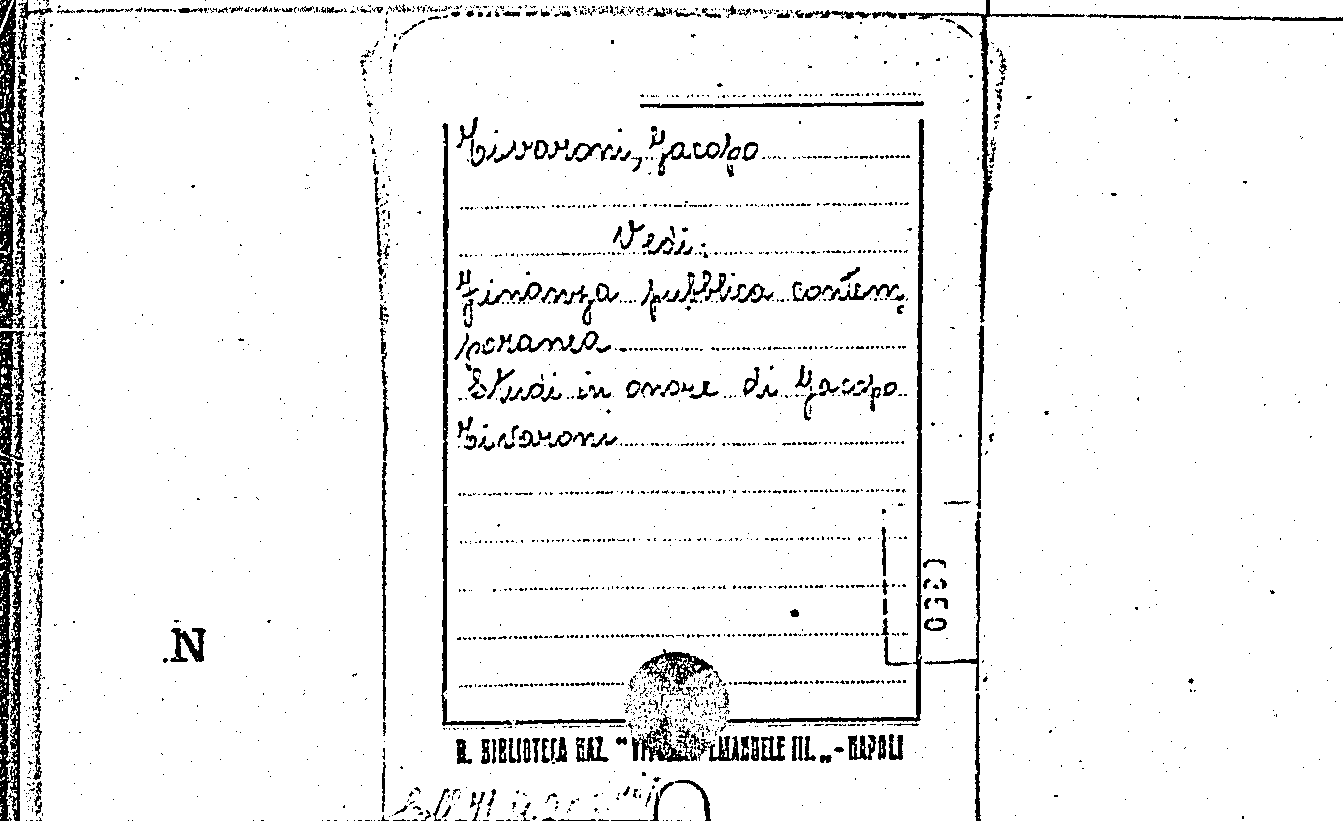 Tivaroni, Jacopo
Vedi:
Finanza pubblica contem
poranea
Studi in onore di Jacopo
Tivaroni
N
0330
R. BIBLIOTECA NAZ. "VITTORIO EMANUELE III. „ - NAPOLI